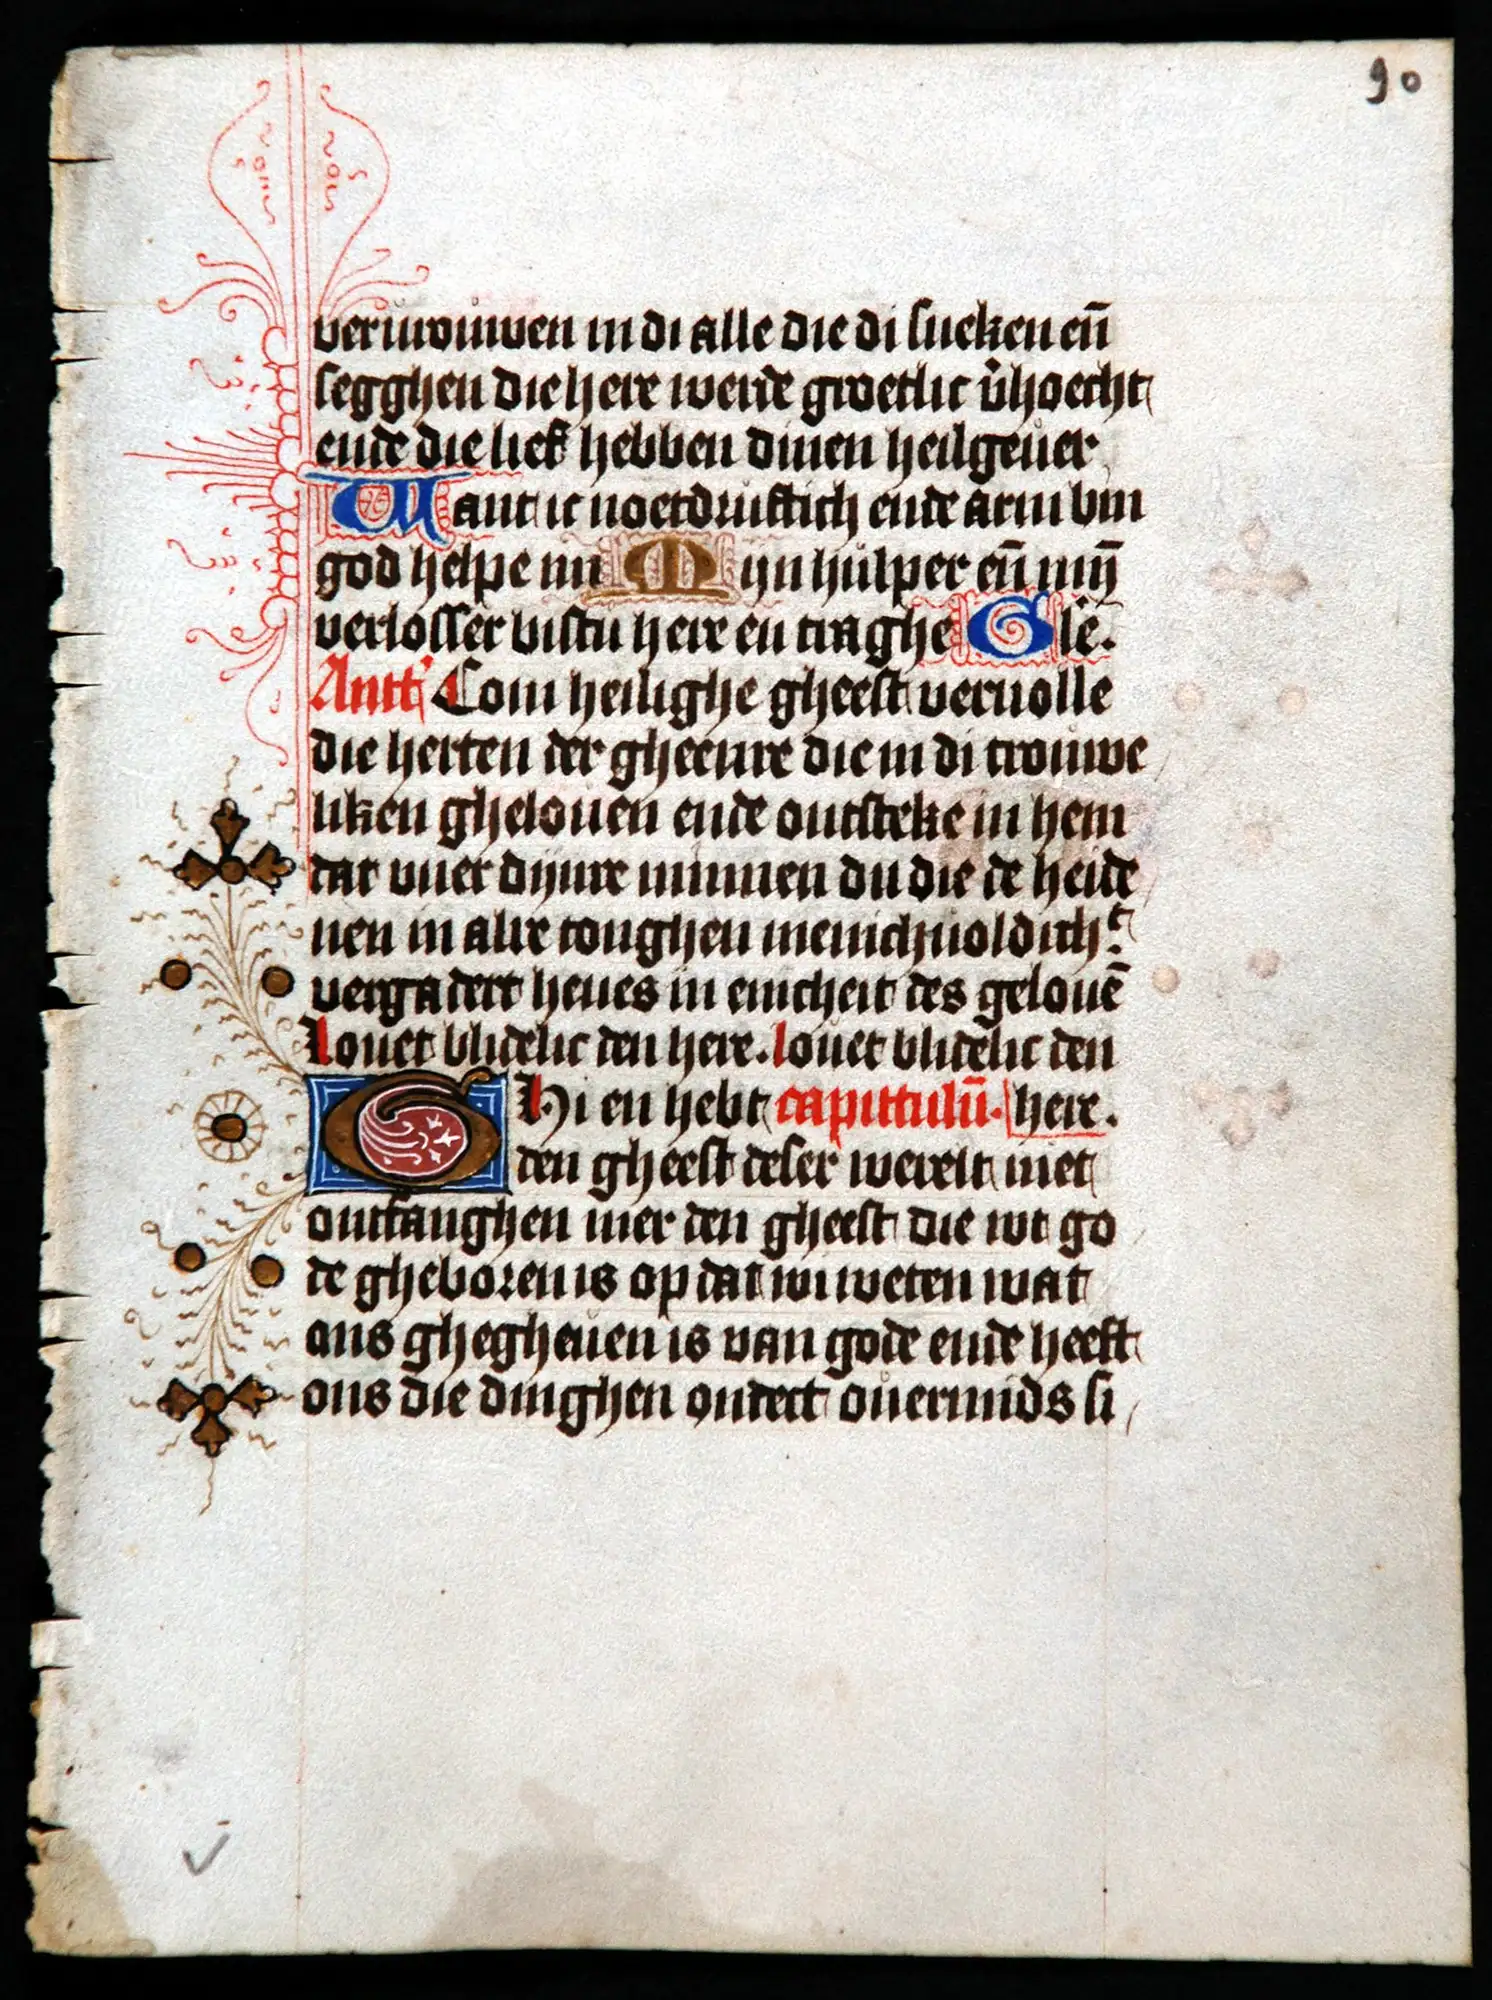 90
vervrouwen in di alle die di sueken eñ
segghen die here werde groetlic v̄hoecht
ende die lief hebben dinen heilgeuer
Want ic noetdruftich ende arm bin
god helpe mi Mijn hulper eñ mijn̄
verlosser bistu here en traghe Gle.
Ant̄ Com heilighe gheest veruolle
die herten der gheenre die in di trouwe
liken ghelouen ende ontsteke in hem
dat vuer dijnre minnen du die de heide
nen in alre tonghen menichuoldich͛
vergadert heues in enicheit des gelouē
louet blidelic den here. louet blidelic den
Ghi en hebt capittulū. here.
den gheest deser werelt niet
ontfanghen mer den gheest die wt go
de gheboren is op dat wi weten wat
ons ghegheuen is van gode ende heeft
ons die dinghen ontect ouermids si